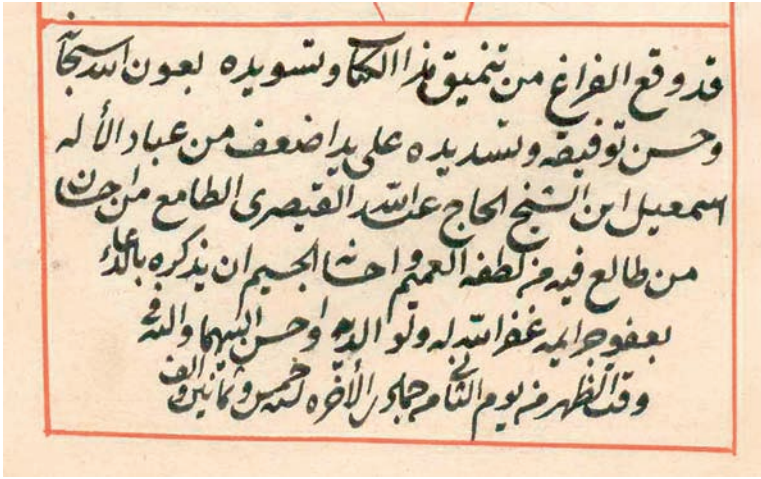 قد وقع الفراغ من تنميق هذا الكتاب وتسويده بعون الله سبحانه
وحسن توفيقه وتسديده على يد اضعف من عباد الأله
اسمعيل ابن الشيخ الحاج عبد الله القيصرى الطامع من احسان
من طالع فيه من لطفه العميم و احسانه الجسيم ان يذكره بالدعاء
بعفو جرايمه غفر الله له ولوالديه واحسن اليهما واليه
وقت الظهر من يوم الثامن جمادى الأخره لسنه خمس وثمانين والف